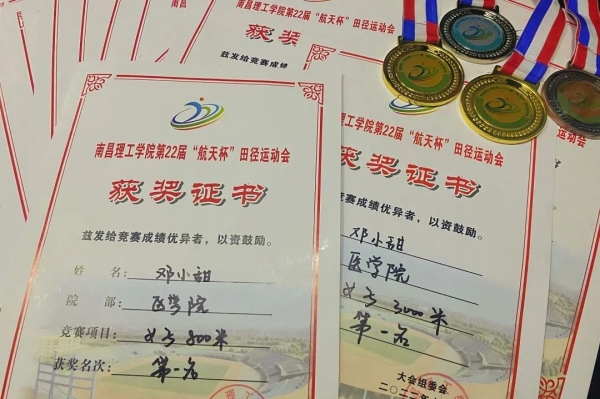 南昌理工学院第22届“航天杯”田径运动会
获奖证书
兹发给竞赛成绩优异者，以资鼓励。
姓 名：邓小甜
院 部：医学院
竞赛项目：女子800米
获奖名次：第一名
理工学院第22届“航天杯”田径运动会
获奖证书
发给竞赛成绩优异者，以资鼓励。
邓小甜
医学院
女子3000米
第一名
大会组委会
二〇二二年
南昌理工学院第22届“航天杯”田径运动会
获奖
兹发给竞赛成绩